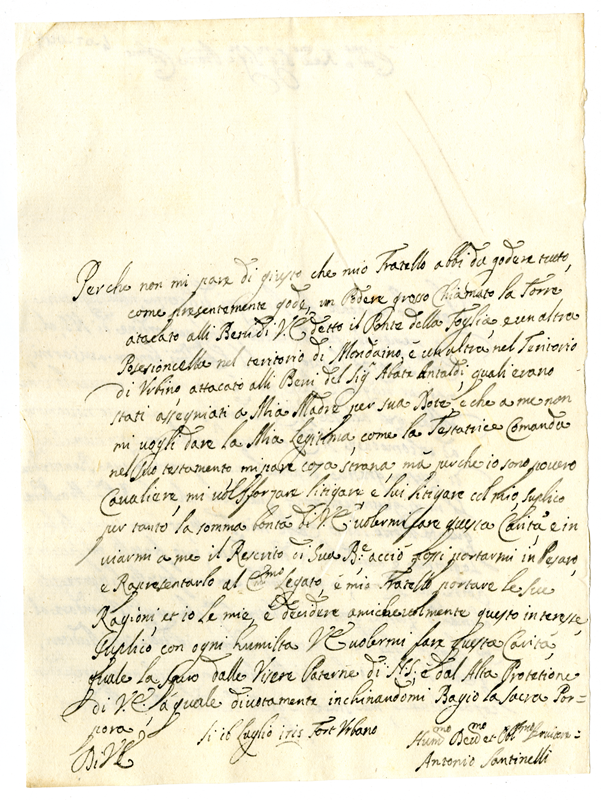 Perche non mi pare di giusto che mio Fratello abbi da godere tutto,
come presentemente gode, un Podere grosso Chiamato la Torre
atacato alli Beni di VE detto il Ponte della Foglia, e un altra
Posesioncella nel teritorio di Mondaino, e un altra nel Teritorio
di Urbino, attacato alli Beni del Sig Abate Antaldi, quali erano
stati assegniati a Mia Madre per sua Dote, e che a me non
mi vogli dare la Mia Legitima, come la Testatrice Comanda
nel suo testamento mi pare cosa strana, ma perche io sono povero
Cavaliere, mi vol sforzare litigare e lui litigare col mio, suplico
per tanto la somma bontà di VE volermi fare questa Carità e in
viarmi a me il Rescrito di Sua Bne acciò possi portarmi in Pesaro,
e Rapresentarlo al Emmo Legato, e mio Fratello portare le sue
Ragioni et io le mie, e decidere amichevolmente questo interesse,
suplico con ogni humiltà VE volermi fare questa Carità
quale la spero dalle Vicere Paterne di NS: e dal Alta Protetione
di VE: à quale divotamente inchinandomi Bagio la Sacra Por=
pora
Di VE
li 26 luglio Fort Urbano
Hummo Devmo et Obmo
Antonio Santinelli